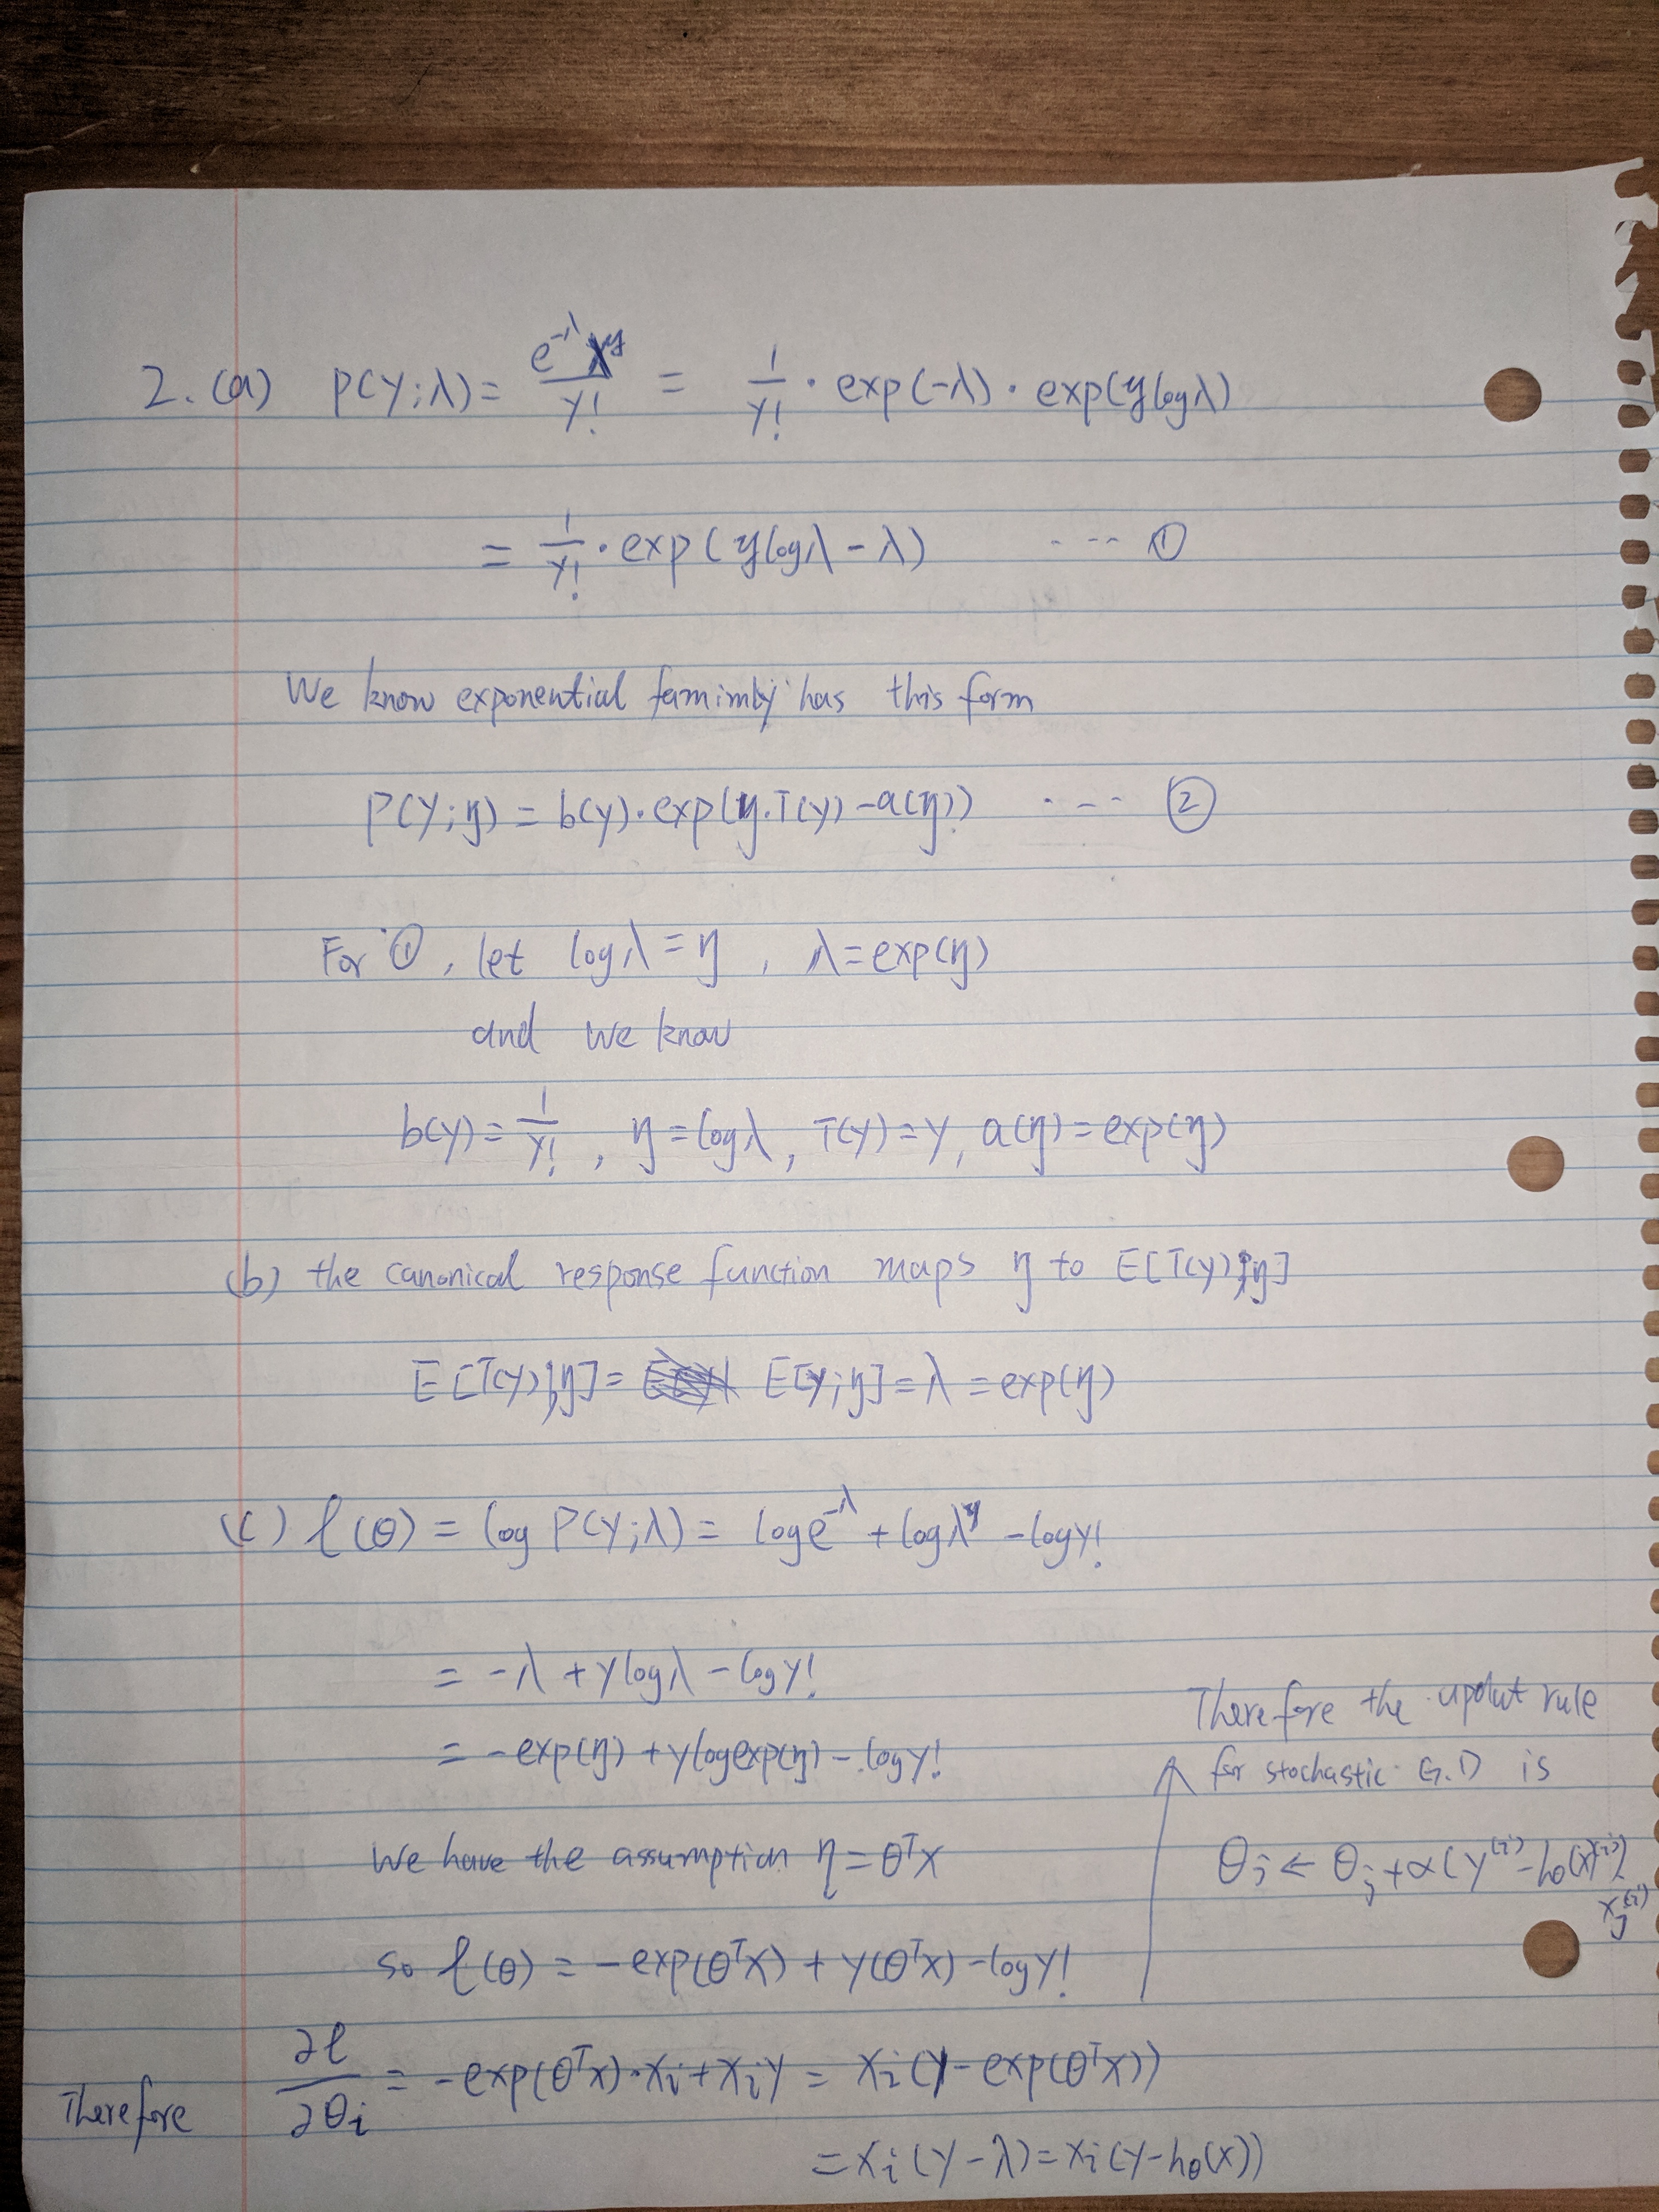 2. (a) P(y;λ) = e^{-λ} λ^y / y! = 1/y! · exp(-λ) · exp(y log λ)
= 1/y! · exp(y log λ - λ) --- ①
We know exponential famimly has this form
P(y;η) = b(y)·exp(η·T(y) - a(η)) --- ②
For ①, let log λ = η, λ = exp(η)
and we know
b(y) = 1/y!, η = log λ, T(y) = y, a(η) = exp(η)
(b) the canonical response function maps η to E[T(y);η]
E[T(y);η] = E[y;η] = λ = exp(η)
(c) ℓ(θ) = log P(y;λ) = log e^{-λ} + log λ^y - log y!
= -λ + y log λ - log y!
= -exp(η) + y log exp(η) - log y!
We have the assumption η = θ^T x
so ℓ(θ) = -exp(θ^T x) + y(θ^T x) - log y!
Therefore ∂ℓ/∂θ_i = -exp(θ^T x)·x_i + x_i y = x_i(y - exp(θ^T x))
= x_i(y - λ) = x_i(y - h_θ(x))
Therefore the updat rule
for stochastic G.D is
θ_j ← θ_j + α(y^{(i)} - h_θ(x)^{(i)})·
x_j^{(i)}